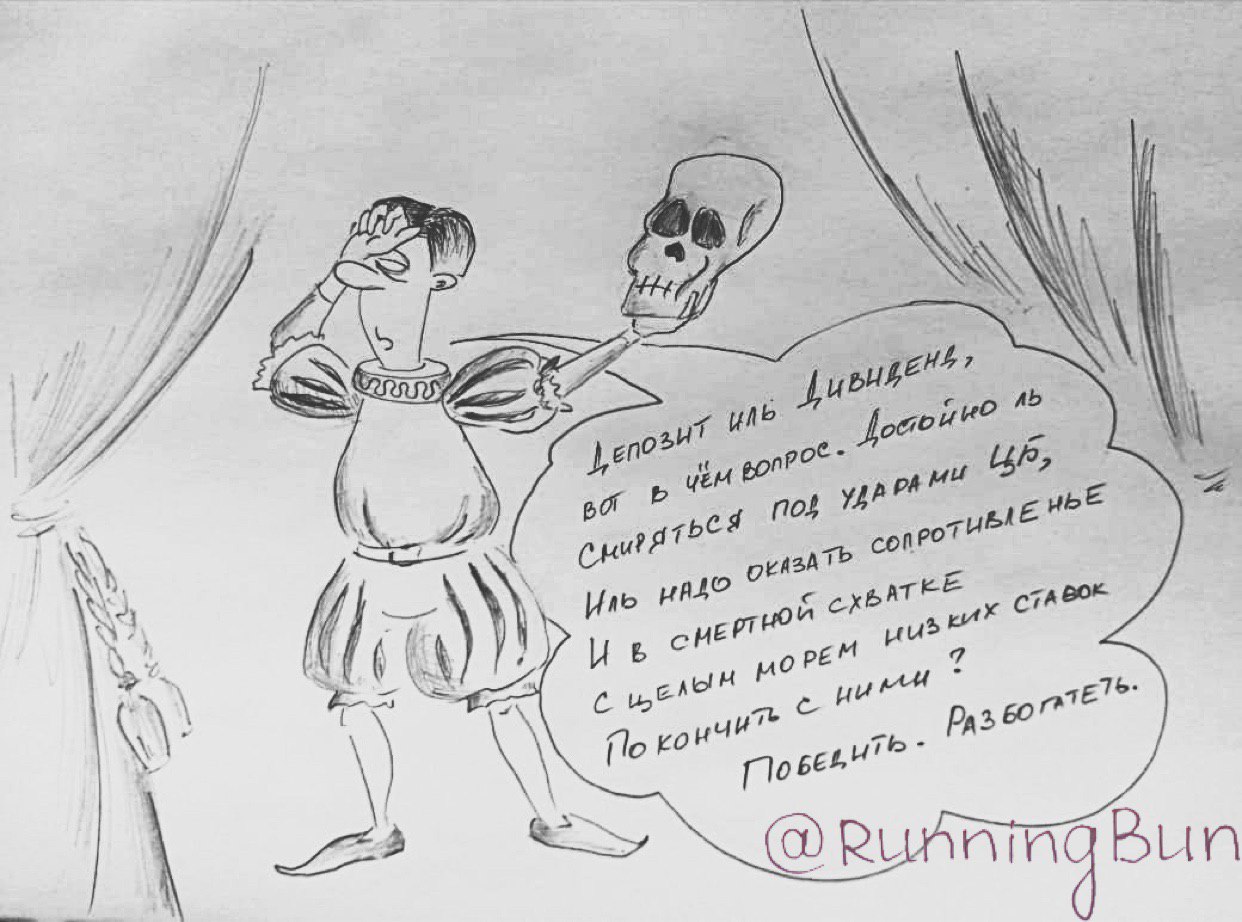 Депозит иль Дивиденд,
вот в чём вопрос. Достойно ль
смиряться под ударами ЦБ,
Иль надо оказать сопротивленье
И в смертной схватке
с целым морем низких ставок
Покончить с ними?
Победить. Разбогатеть.
@RunningBun